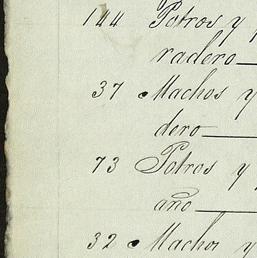 144 Potros y
radero
37 Machos y
dero
73 Potros y
año
32 Machos y